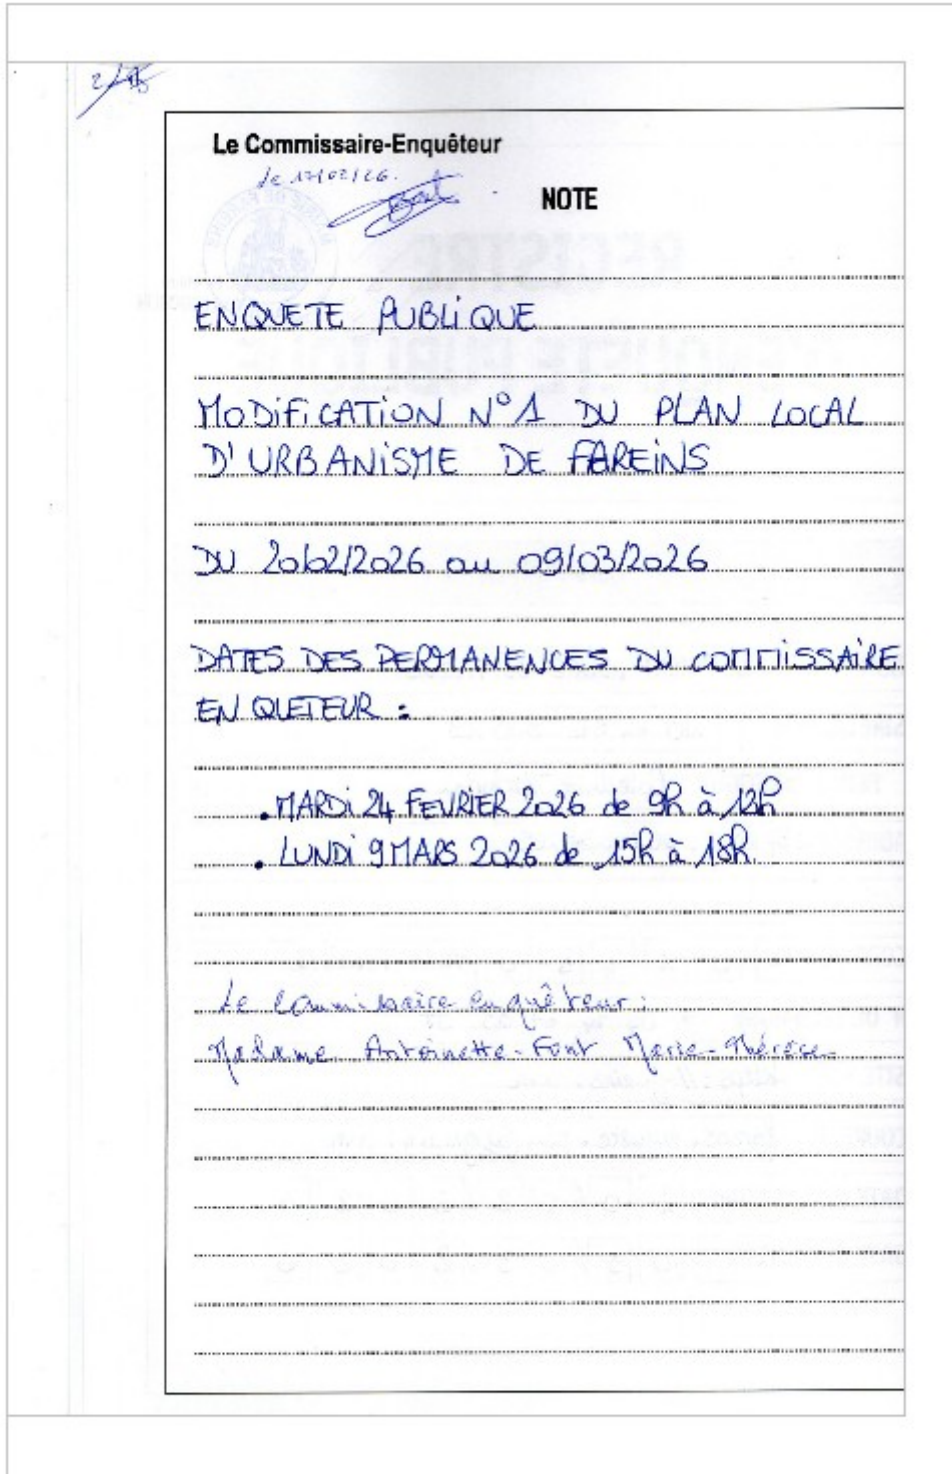 Le Commissaire-Enquêteur
le 17/02/26.
NOTE
ENQUETE PUBLIQUE
MODIFICATION N°1 DU PLAN LOCAL
D'URBANISME DE FAREINS
DU 20/02/2026 au 09/03/2026
DATES DES PERMANENCES DU COMMISSAIRE
ENQUETEUR :
. MARDI 24 FEVRIER 2026 de 9h à 12h
. LUNDI 9 MARS 2026 de 15h à 18h
Le Commissaire enquêteur :
Madame Antoinette-Font Marie-Thérèse